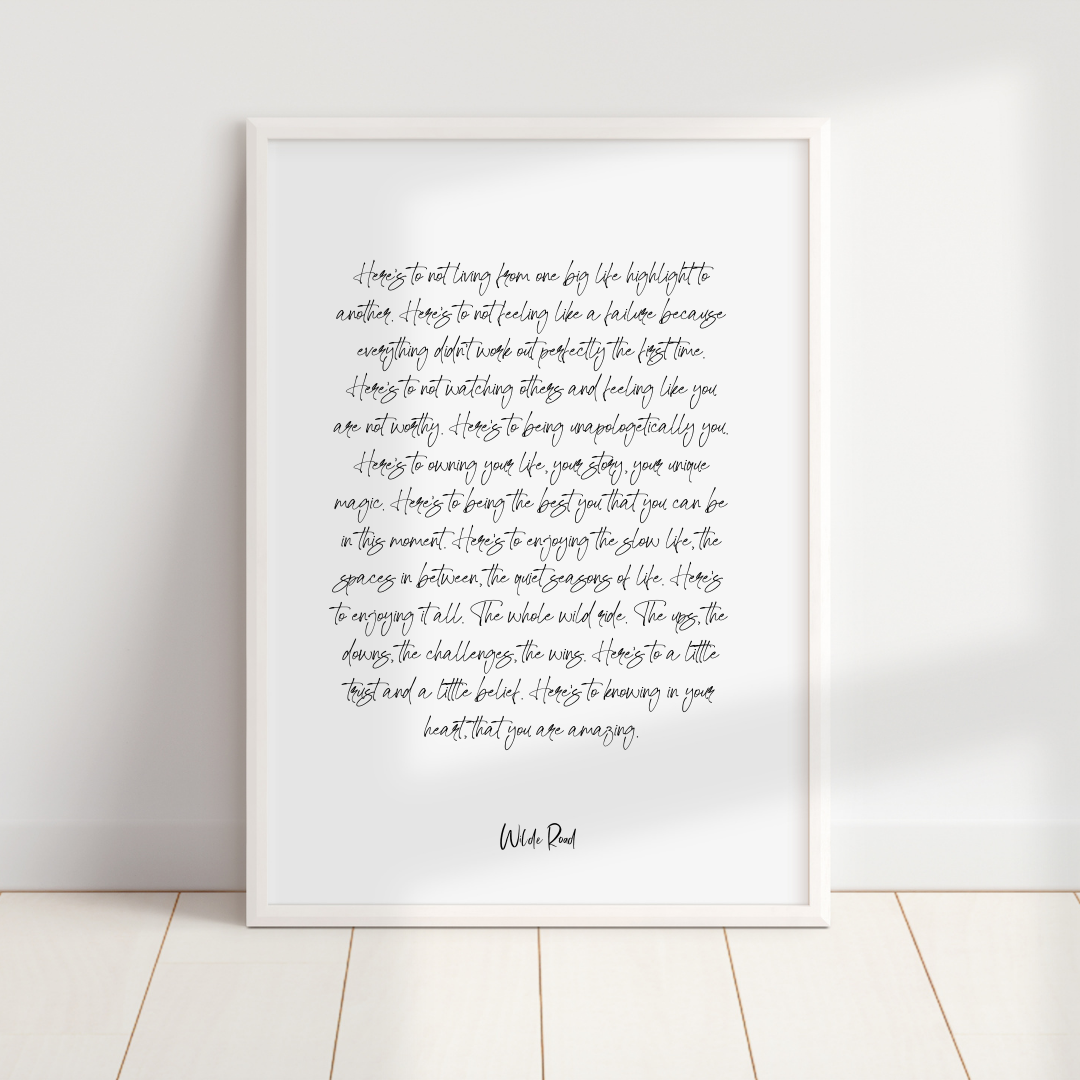 Here's to not living from one big life highlight to
another. Here's to not feeling like a failure because
everything didn't work out perfectly the first time.
Here's to not watching others and feeling like you
are not worthy. Here's to being unapologetically you.
Here's to owning your life, your story, your unique
magic. Here's to being the best you that you can be
in this moment. Here's to enjoying the slow life, the
spaces in between, the quiet seasons of life. Here's
to enjoying it all. The whole wild ride. The ups, the
downs, the challenges, the wins. Here's to a little
trust and a little belief. Here's to knowing in your
heart, that you are amazing.
Wilde Road